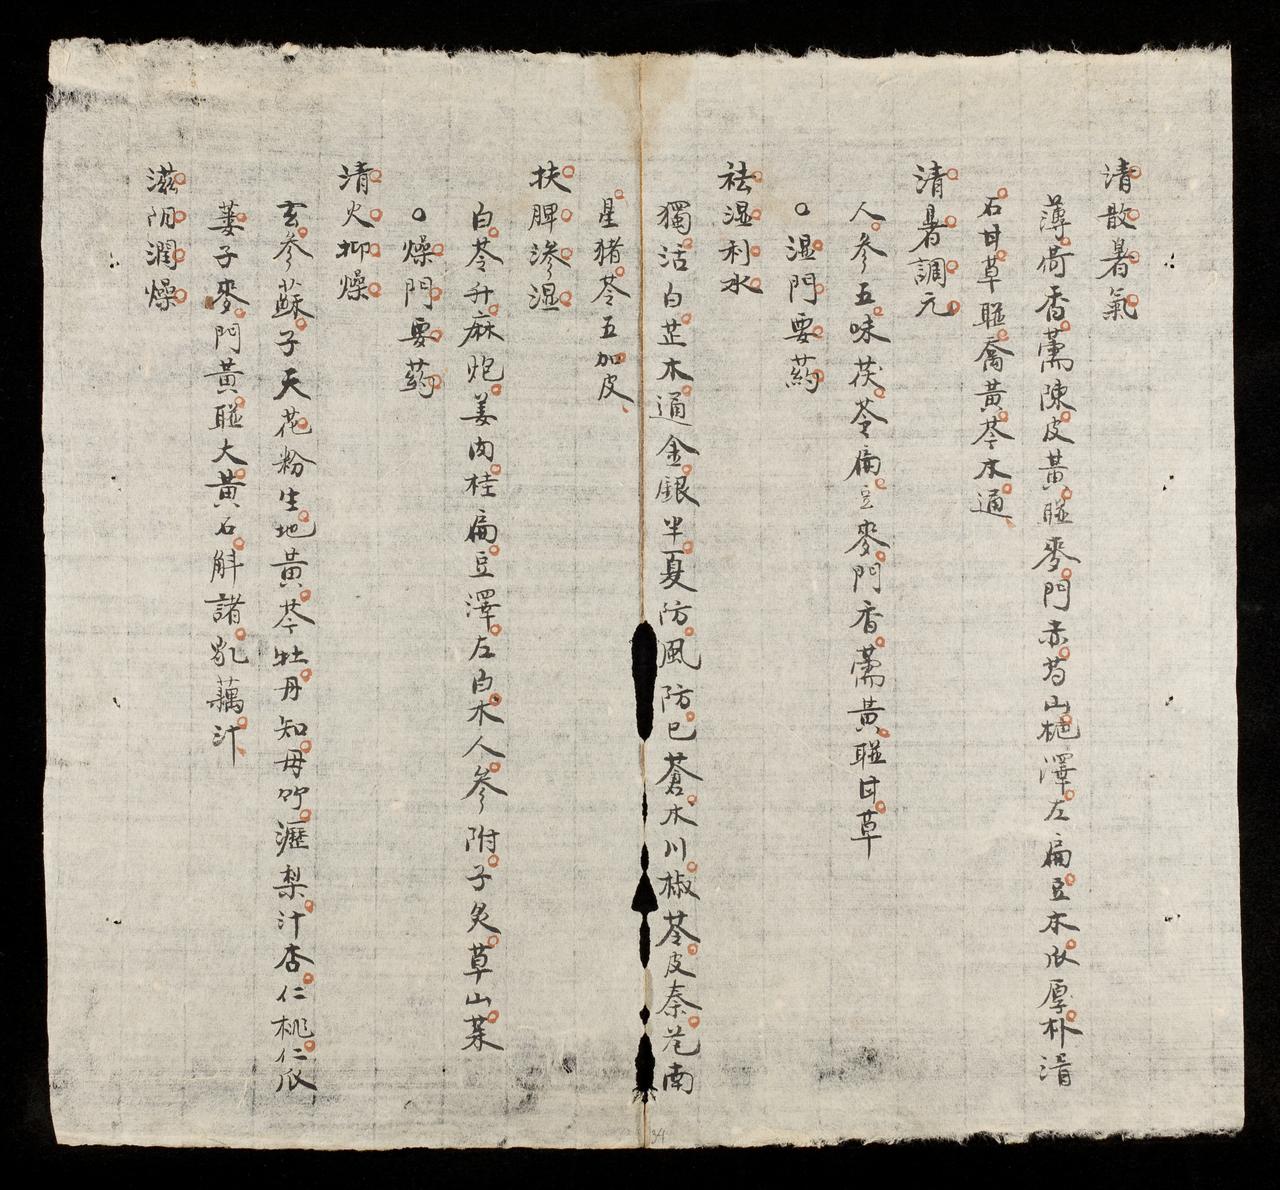 清散暑氣
薄荷香薷陳皮黃聯麥門赤芍山梔澤左扁豆木瓜厚朴滑
石甘草聯喬黃芩木通
清暑調元
人參五味茯苓扁豆麥門香薷黃聯甘草
湿門要药
祛湿利水
獨活白芷木通金銀半夏防風防巳蒼朮川椒苓皮秦艽南
星猪苓五加皮
扶脾滲湿
白苓升麻炮姜肉桂扁豆澤左白朮人參附子炙草山茱
燥門要药
清火抑燥
玄參蘇子天花粉生地黃芩牡丹知母竹瀝梨汁杏仁桃仁瓜
蒌子麥門黃聯大黃石斛諸乿藕汁
滋阴潤燥
34